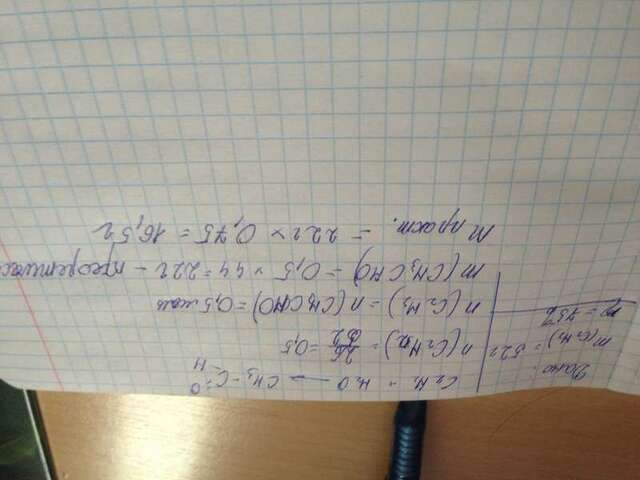 Дано:
m(C2H2) = 52 г
η = 75%
C2H2 + H2O → CH3 - C O H
n(C2H2) = 26/52 = 0,5
n(C2H2) = n(CH3CHO) = 0,5 моль
m(CH3CHO) = 0,5 × 44 = 22 г - теоретичес
M практ. = 22 г × 0,75 = 16,5 г